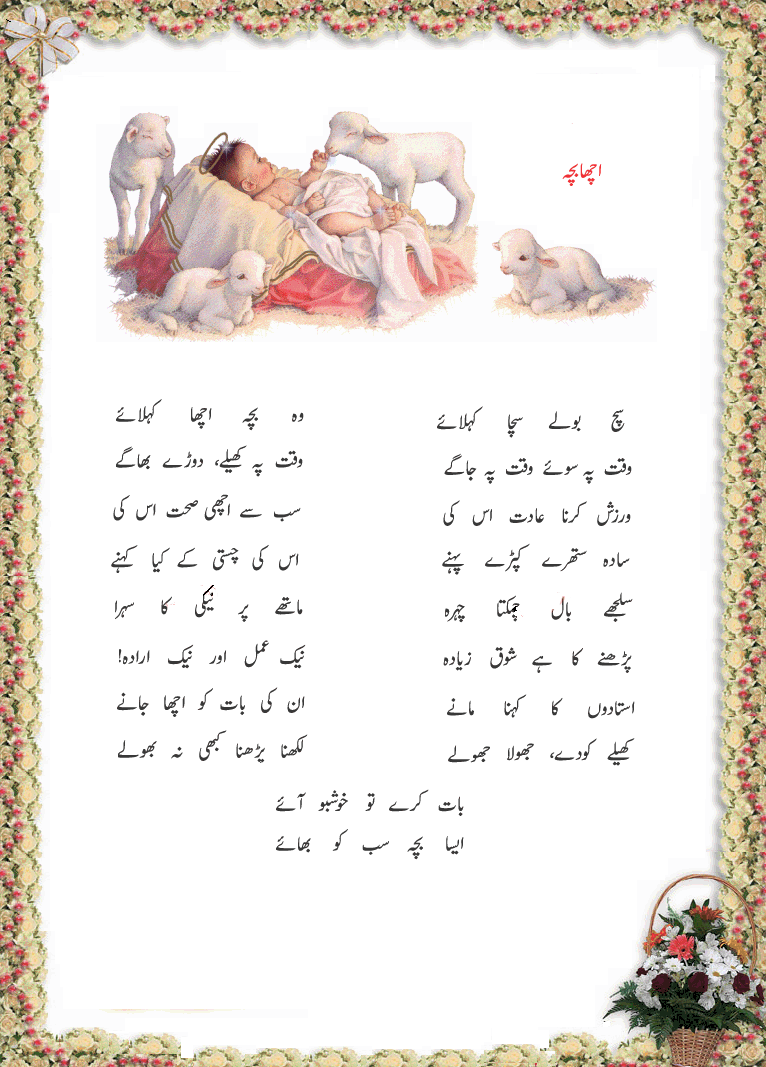 اچھا بچہ
سچ بولے سچا کہلائے
وہ بچہ اچھا کہلائے
وقت پہ سوئے وقت پہ جاگے
وقت پہ کھیلے، دوڑے بھاگے
ورزش کرنا عادت اس کی
سب سے اچھی صحت اس کی
سادہ ستھرے کپڑے پہنے
اس کی چستی کے کیا کہنے
سلجھے بال چمکتا چہرہ
ماتھے پر نیکی کا سہرا
پڑھنے کا ہے شوق زیادہ
نیک عمل اور نیک ارادہ!
استادوں کا کہنا مانے
ان کی بات کو اچھا جانے
کھیلے کودے، جھولا جھولے
لکھنا پڑھنا کبھی نہ بھولے
بات کرے تو خوشبو آئے
ایسا بچہ سب کو بھائے